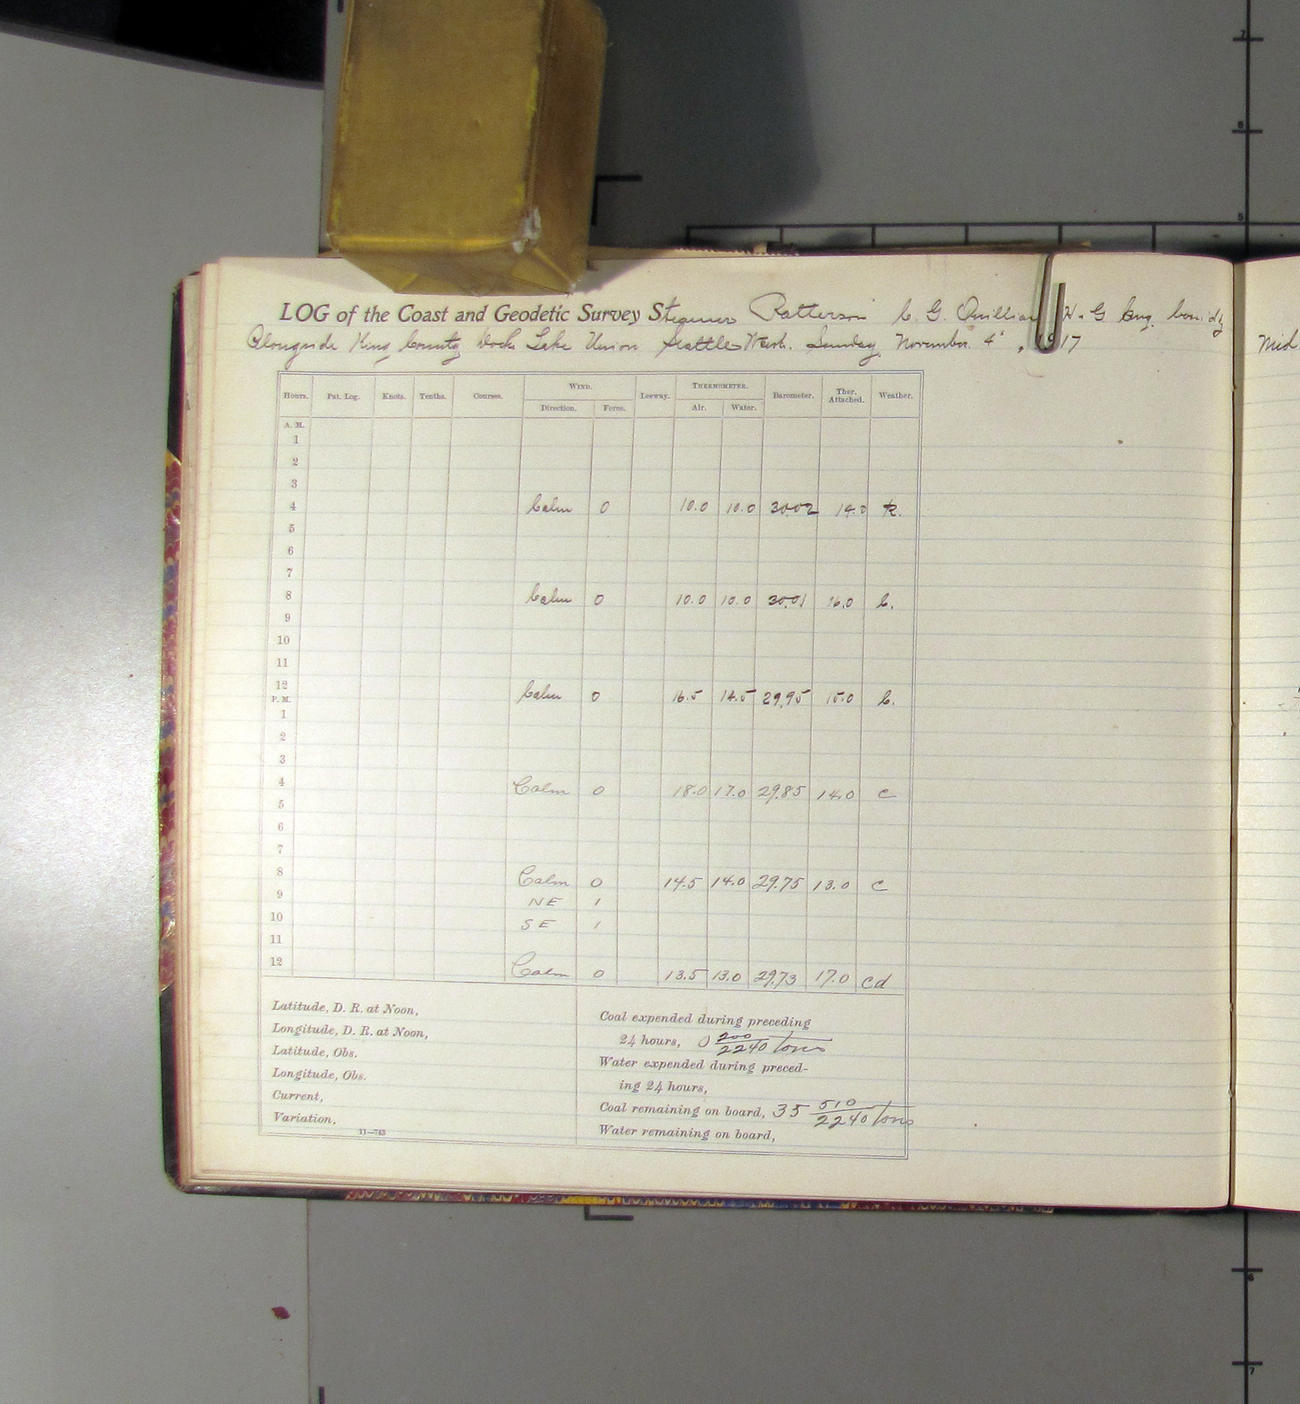 LOG of the Coast and Geodetic Survey Steamer Patterson C. G. Quillian H. & G Eng. comdg
Alongside King County Dock Lake Union Seattle Wash. Sunday November 4", 1917
Mid
Hours. Pat. Log. Knots. Tenths. Courses. WIND. Leeway. THERMOMETER. Barometer. Ther. Attached. Weather.
Direction. Force. Air. Water.
A. M.
1
2
3
4 Calm 0 10.0 10.0 30.02 14.0
5
6
7
8 Calm 0 10.0 10.0 30.01 16.0 b.
9
10
11
12 Calm 0 16.5 14.5 29.95 15.0 b.
P. M.
1
2
3
4 Calm 0 18.0 17.0 29.85 14.0 c
5
6
7
8 Calm 0 14.5 14.0 29.75 13.0 c
9 NE 1
10 SE 1
11
12 Calm 0 13.5 13.0 29.73 17.0 cd
Latitude, D. R. at Noon,
Longitude, D. R. at Noon,
Latitude, Obs.
Longitude, Obs.
Current,
Variation.
11—743
Coal expended during preceding
24 hours, 0 200/2240 tons
Water expended during preced-
ing 24 hours,
Coal remaining on board, 35 510/2240 tons
Water remaining on board,